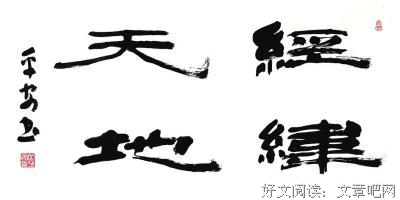 經緯
天地
平安書
好文阅读：文章吧网